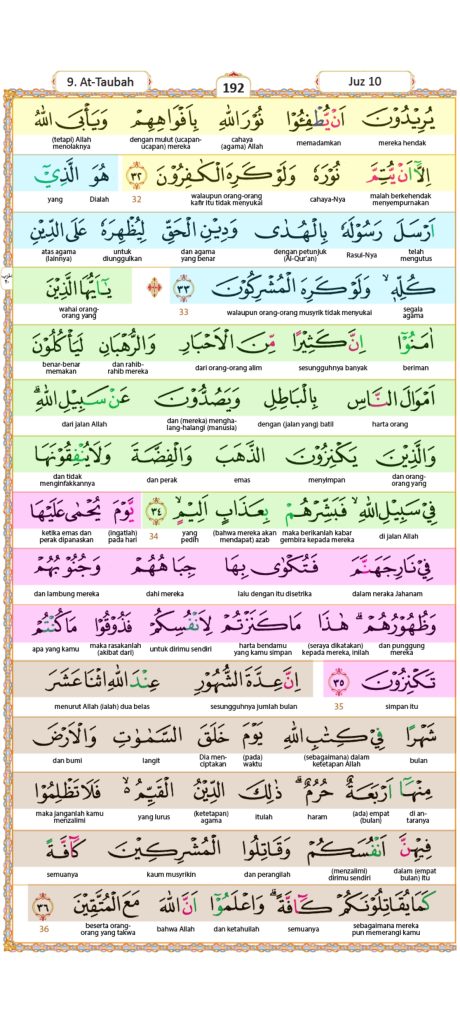 9. At-Taubah 192 Juz 10
يُرِيْدُوْنَ اَنْ يُّطْفِـُٔوْا نُوْرَ اللّٰهِ بِاَفْوَاهِهِمْ وَيَأْبَى اللّٰهُ
mereka hendak memadamkan cahaya (agama) Allah dengan mulut (ucapan-ucapan) mereka (tetapi) Allah menolaknya
اِلَّآ اَنْ يُّتِمَّ نُوْرَهٗ وَلَوْ كَرِهَ الْكٰفِرُوْنَ ٣٢ هُوَ الَّذِيْٓ
malah berkehendak menyempurnakan cahaya-Nya walaupun orang-orang kafir itu tidak menyukai 32 Dialah yang
اَرْسَلَ رَسُوْلَهٗ بِالْهُدٰى وَدِيْنِ الْحَقِّ لِيُظْهِرَهٗ عَلَى الدِّيْنِ
telah mengutus Rasul-Nya dengan petunjuk (Al-Qur'an) dan agama yang benar untuk diunggulkan atas agama (lainnya)
كُلِّهٖۙ وَلَوْ كَرِهَ الْمُشْرِكُوْنَ ٣٣ يٰٓاَيُّهَا الَّذِيْنَ
segala agama walaupun orang-orang musyrik tidak menyukai 33 wahai orang-orang yang
اٰمَنُوْٓا اِنَّ كَثِيْرًا مِّنَ الْاَحْبَارِ وَالرُّهْبَانِ لَيَأْكُلُوْنَ
beriman sesungguhnya banyak dari orang-orang alim dan rahib-rahib mereka benar-benar memakan
اَمْوَالَ النَّاسِ بِالْبَاطِلِ وَيَصُدُّوْنَ عَنْ سَبِيْلِ اللّٰهِۗ
harta orang dengan (jalan yang) batil dan (mereka) menghalang-halangi (manusia) dari jalan Allah
وَالَّذِيْنَ يَكْنِزُوْنَ الذَّهَبَ وَالْفِضَّةَ وَلَا يُنْفِقُوْنَهَا
dan orang-orang yang menyimpan emas dan perak dan tidak menginfakkannya
فِيْ سَبِيْلِ اللّٰهِۙ فَبَشِّرْهُمْ بِعَذَابٍ اَلِيْمٍۙ ٣٤ يَّوْمَ يُحْمٰى عَلَيْهَا
di jalan Allah maka berikanlah kabar gembira kepada mereka (bahwa mereka akan mendapat) azab yang pedih 34 (ingatlah) pada hari ketika emas dan perak dipanaskan
فِيْ نَارِ جَهَنَّمَ فَتُكْوٰى بِهَا جِبَاهُهُمْ وَجُنُوْبُهُمْ
dalam neraka Jahanam lalu dengan itu disetrika dahi mereka dan lambung mereka
وَظُهُوْرُهُمْۗ هٰذَا مَا كَنَزْتُمْ لِاَنْفُسِكُمْ فَذُوْقُوْا مَا كُنْتُمْ
dan punggung mereka (seraya dikatakan) kepada mereka, inilah harta bendamu yang kamu simpan untuk dirimu sendiri maka rasakanlah (akibat dari) apa yang kamu
تَكْنِزُوْنَ ٣٥ اِنَّ عِدَّةَ الشُّهُوْرِ عِنْدَ اللّٰهِ اثْنَا عَشَرَ
simpan itu 35 sesungguhnya jumlah bulan menurut Allah (ialah) dua belas
شَهْرًا فِيْ كِتٰبِ اللّٰهِ يَوْمَ خَلَقَ السَّمٰوٰتِ وَالْاَرْضَ
bulan (sebagaimana) dalam ketetapan Allah (pada) waktu Dia menciptakan langit dan bumi
مِنْهَآ اَرْبَعَةٌ حُرُمٌۗ ذٰلِكَ الدِّيْنُ الْقَيِّمُۙ فَلَا تَظْلِمُوْا
di antaranya (ada) empat (bulan) haram itulah (ketetapan) agama yang lurus maka janganlah kamu menzalimi
فِيْهِنَّ اَنْفُسَكُمْ وَقَاتِلُوا الْمُشْرِكِيْنَ كَاۤفَّةً
dalam (empat bulan) itu (menzalimi) dirimu sendiri dan perangilah kaum musyrikin semuanya
كَمَا يُقَاتِلُوْنَكُمْ كَاۤفَّةًۗ وَاعْلَمُوْٓا اَنَّ اللّٰهَ مَعَ الْمُتَّقِيْنَ ٣٦
sebagaimana mereka pun memerangi kamu semuanya dan ketahuilah bahwa Allah beserta orang-orang yang takwa 36